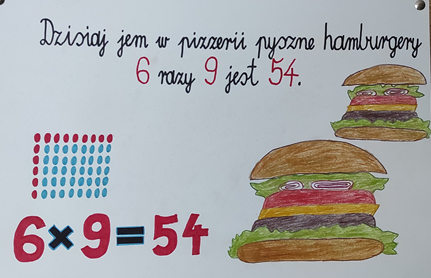 Dzisiaj jem w pizzerii pyszne hamburgery
6 razy 9 jest 54.
6×9=54